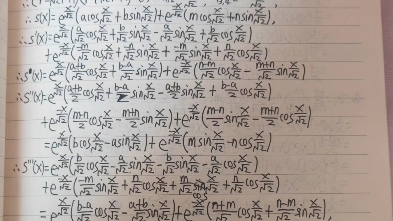 ∴ s(x) = e^{x/√2}(a cos x/√2 + b sin x/√2) + e^{-x/√2}(m cos x/√2 + n sin x/√2),
∴ s'(x) = e^{x/√2}(a/√2 cos x/√2 + b/√2 sin x/√2 - a/√2 sin x/√2 + b/√2 cos x/√2)
+ e^{-x/√2}(-m/√2 cos x/√2 - n/√2 sin x/√2 + -m/√2 sin x/√2 + n/√2 cos x/√2)
∴ s'(x) = e^{x/√2}(a+b/√2 cos x/√2 + b-a/√2 sin x/√2) + e^{-x/√2}(n-m/√2 cos x/√2 - m+n/√2 sin x/√2)
∴ s''(x) = e^{x/√2}(a+b/2 cos x/√2 + b-a/2 sin x/√2 - a+b/2 sin x/√2 + b-a/2 cos x/√2)
+ e^{-x/√2}(m-n/2 cos x/√2 + m+n/2 sin x/√2) + e^{-x/√2}(m-n/2 sin x/√2 - m+n/2 cos x/√2)
= e^{x/√2}(b cos x/√2 - a sin x/√2) + e^{-x/√2}(m sin x/√2 - n cos x/√2)
∴ s'''(x) = e^{x/√2}(b/√2 cos x/√2 - a/√2 sin x/√2 - b/√2 sin x/√2 - a/√2 cos x/√2)
+ e^{-x/√2}(-m/√2 sin x/√2 + n/√2 cos x/√2 + m/√2 cos x/√2 + n/√2 sin x/√2)
= e^{x/√2}(b-a/√2 cos x/√2 - a+b/√2 sin x/√2) + e^{-x/√2}(n+m/√2 cos x/√2 + n-m/√2 sin x/√2),